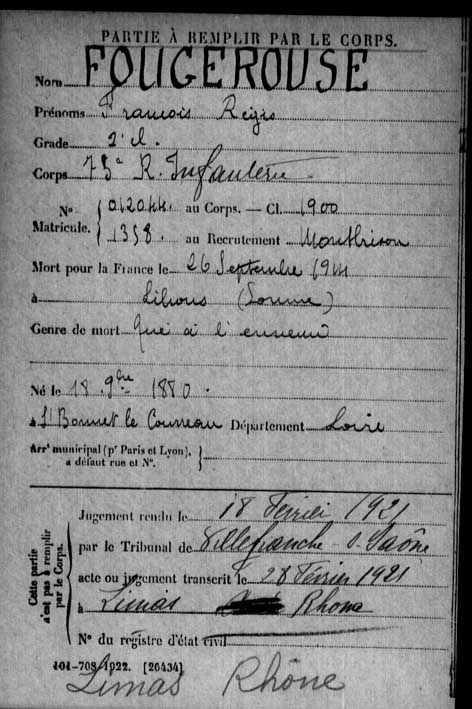 PARTIE À REMPLIR PAR LE CORPS.
Nom FOUGEROUSE
Prénoms François Régis
Grade 2e cl.
Corps 75e R. Infanterie
N° 012044 au Corps. — Cl. 1900
Matricule. 1358 au Recrutement Montbrison
Mort pour la France le 26 Septembre 1914
à Lihons (Somme)
Genre de mort Tué à l'ennemi
Né le 18 9bre 1880.
à St Bonnet le Courreau Département Loire
Arrt municipal (pr Paris et Lyon),
à défaut rue et N°.
Cette partie n'est pas à remplir par le Corps.
Jugement rendu le 18 Février 1921
par le Tribunal de Villefranche s. Saône
acte ou jugement transcrit le 28 Février 1921
à Limas Rhône
N° du registre d'état civil
101-708-1922. [26434]
Limas Rhône